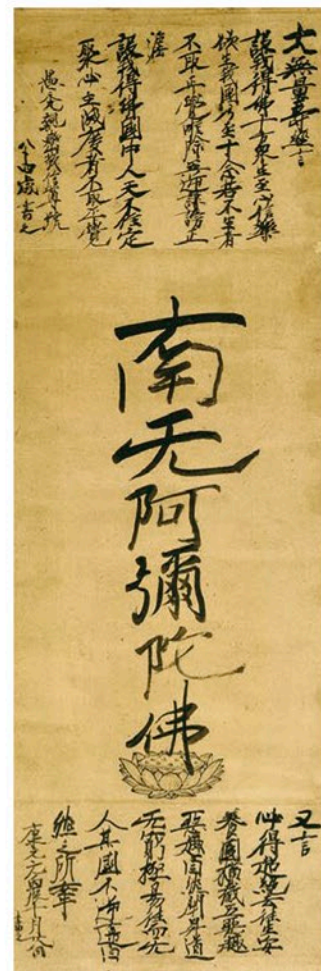 大無量壽經言
設我得佛十方衆生至心信樂
欲生我國乃至十念若不生者
不取正覺唯除五逆誹謗正
法
設我得佛國中人天不住定
聚必至滅度者不取正覺
愚禿親鸞敬信尊號
八十四歳書之
南无阿彌陀佛
又言
必得超絶去往生安
養國横截五惡趣
惡趣自然閉昇道
无窮極易往而无
人其國不逆違自
然之所牽
康元元丙辰十月廿八日書之